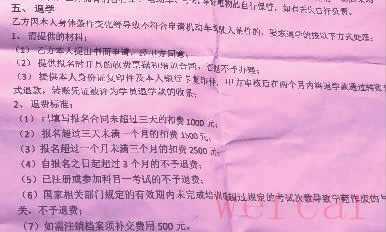 五、退学
乙方因本人身体条件变化等导致不符合申请机动车驾驶人条件的，
1、需提供的材料：
（1）乙方本人提出书面申请，经甲方同意；
（2）提供报名时开具的收费票据和培训合同，
（3）提供本人身份证复印件及本人银行卡复印件，甲方审核后在两个月内将退学款通过转账
式退款，转账凭证被许为学员退学款的收条；
2、退费标准：
（1）已填写报名合同未超过三天的扣费 1000 元；
（2）报名超过三天未满一个月的扣费 1500 元；
（3）报名超过一个月未满三个月的扣费 2500 元；
（4）自报名之日起超过 3 个月的不予退费；
（5）已注册或参加科目一考试的不予退费；
（6）国家相关部门规定的有效期内未完成培训或超过规定的考试次数导致学籍作废的与
关，不予退费；
（7）如需注销档案须补交费用 500 元。